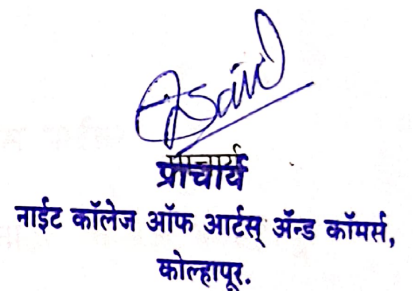 प्राचार्य
प्राचार्य
नाईट कॉलेज ऑफ आर्टस् ॲन्ड कॉमर्स,
कोल्हापूर.